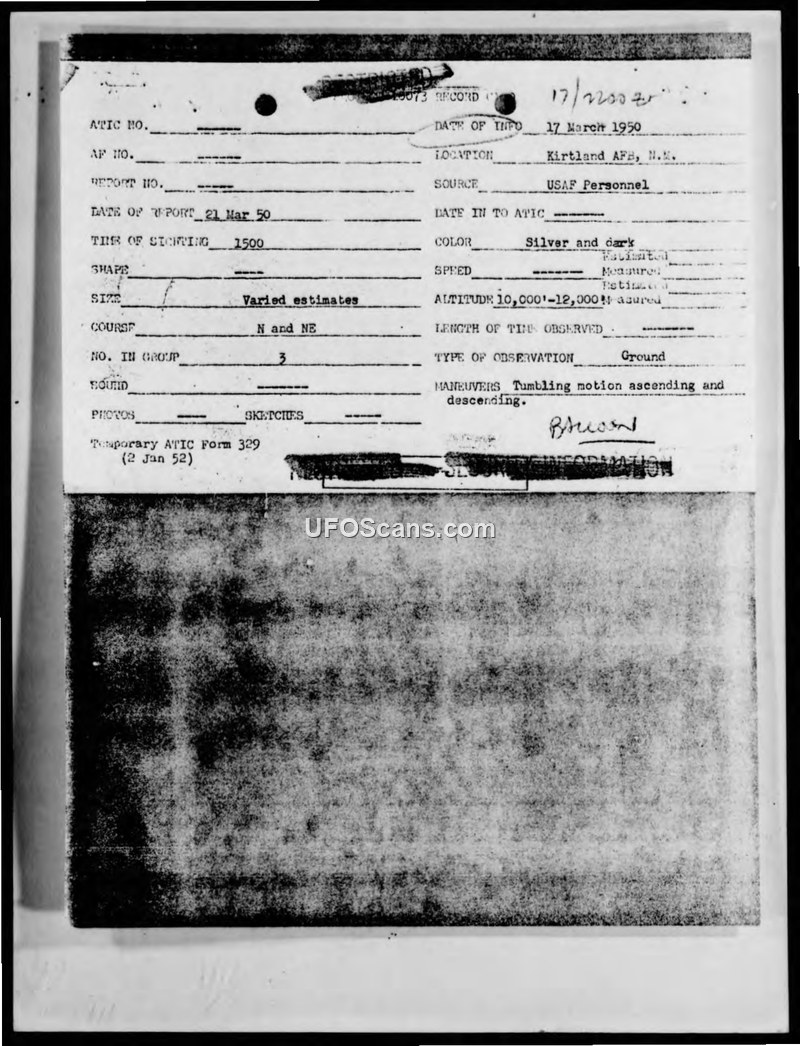 10073 RECORD
17/2200 Z
ATIC NO. ----- DATE OF INFO 17 March 1950
AF NO. ----- LOCATION Kirtland AFB, N.M.
REPORT NO. ----- SOURCE USAF Personnel
DATE OF REPORT 21 Mar 50 DATE IN TO ATIC -------
TIME OF SIGHTING 1500 COLOR Silver and dark
Estimated
SHAPE ---- SPEED ------- Measured
Estimated
SIZE Varied estimates ALTITUDE 10,000'-12,000' Measured
COURSE N and NE LENGTH OF TIME OBSERVED -------
NO. IN GROUP 3 TYPE OF OBSERVATION Ground
SOUND ------- MANEUVERS Tumbling motion ascending and
descending.
PHOTOS ---- SKETCHES -----
Temporary ATIC Form 329
(2 Jan 52)
INFORMATION
UFOScans.com